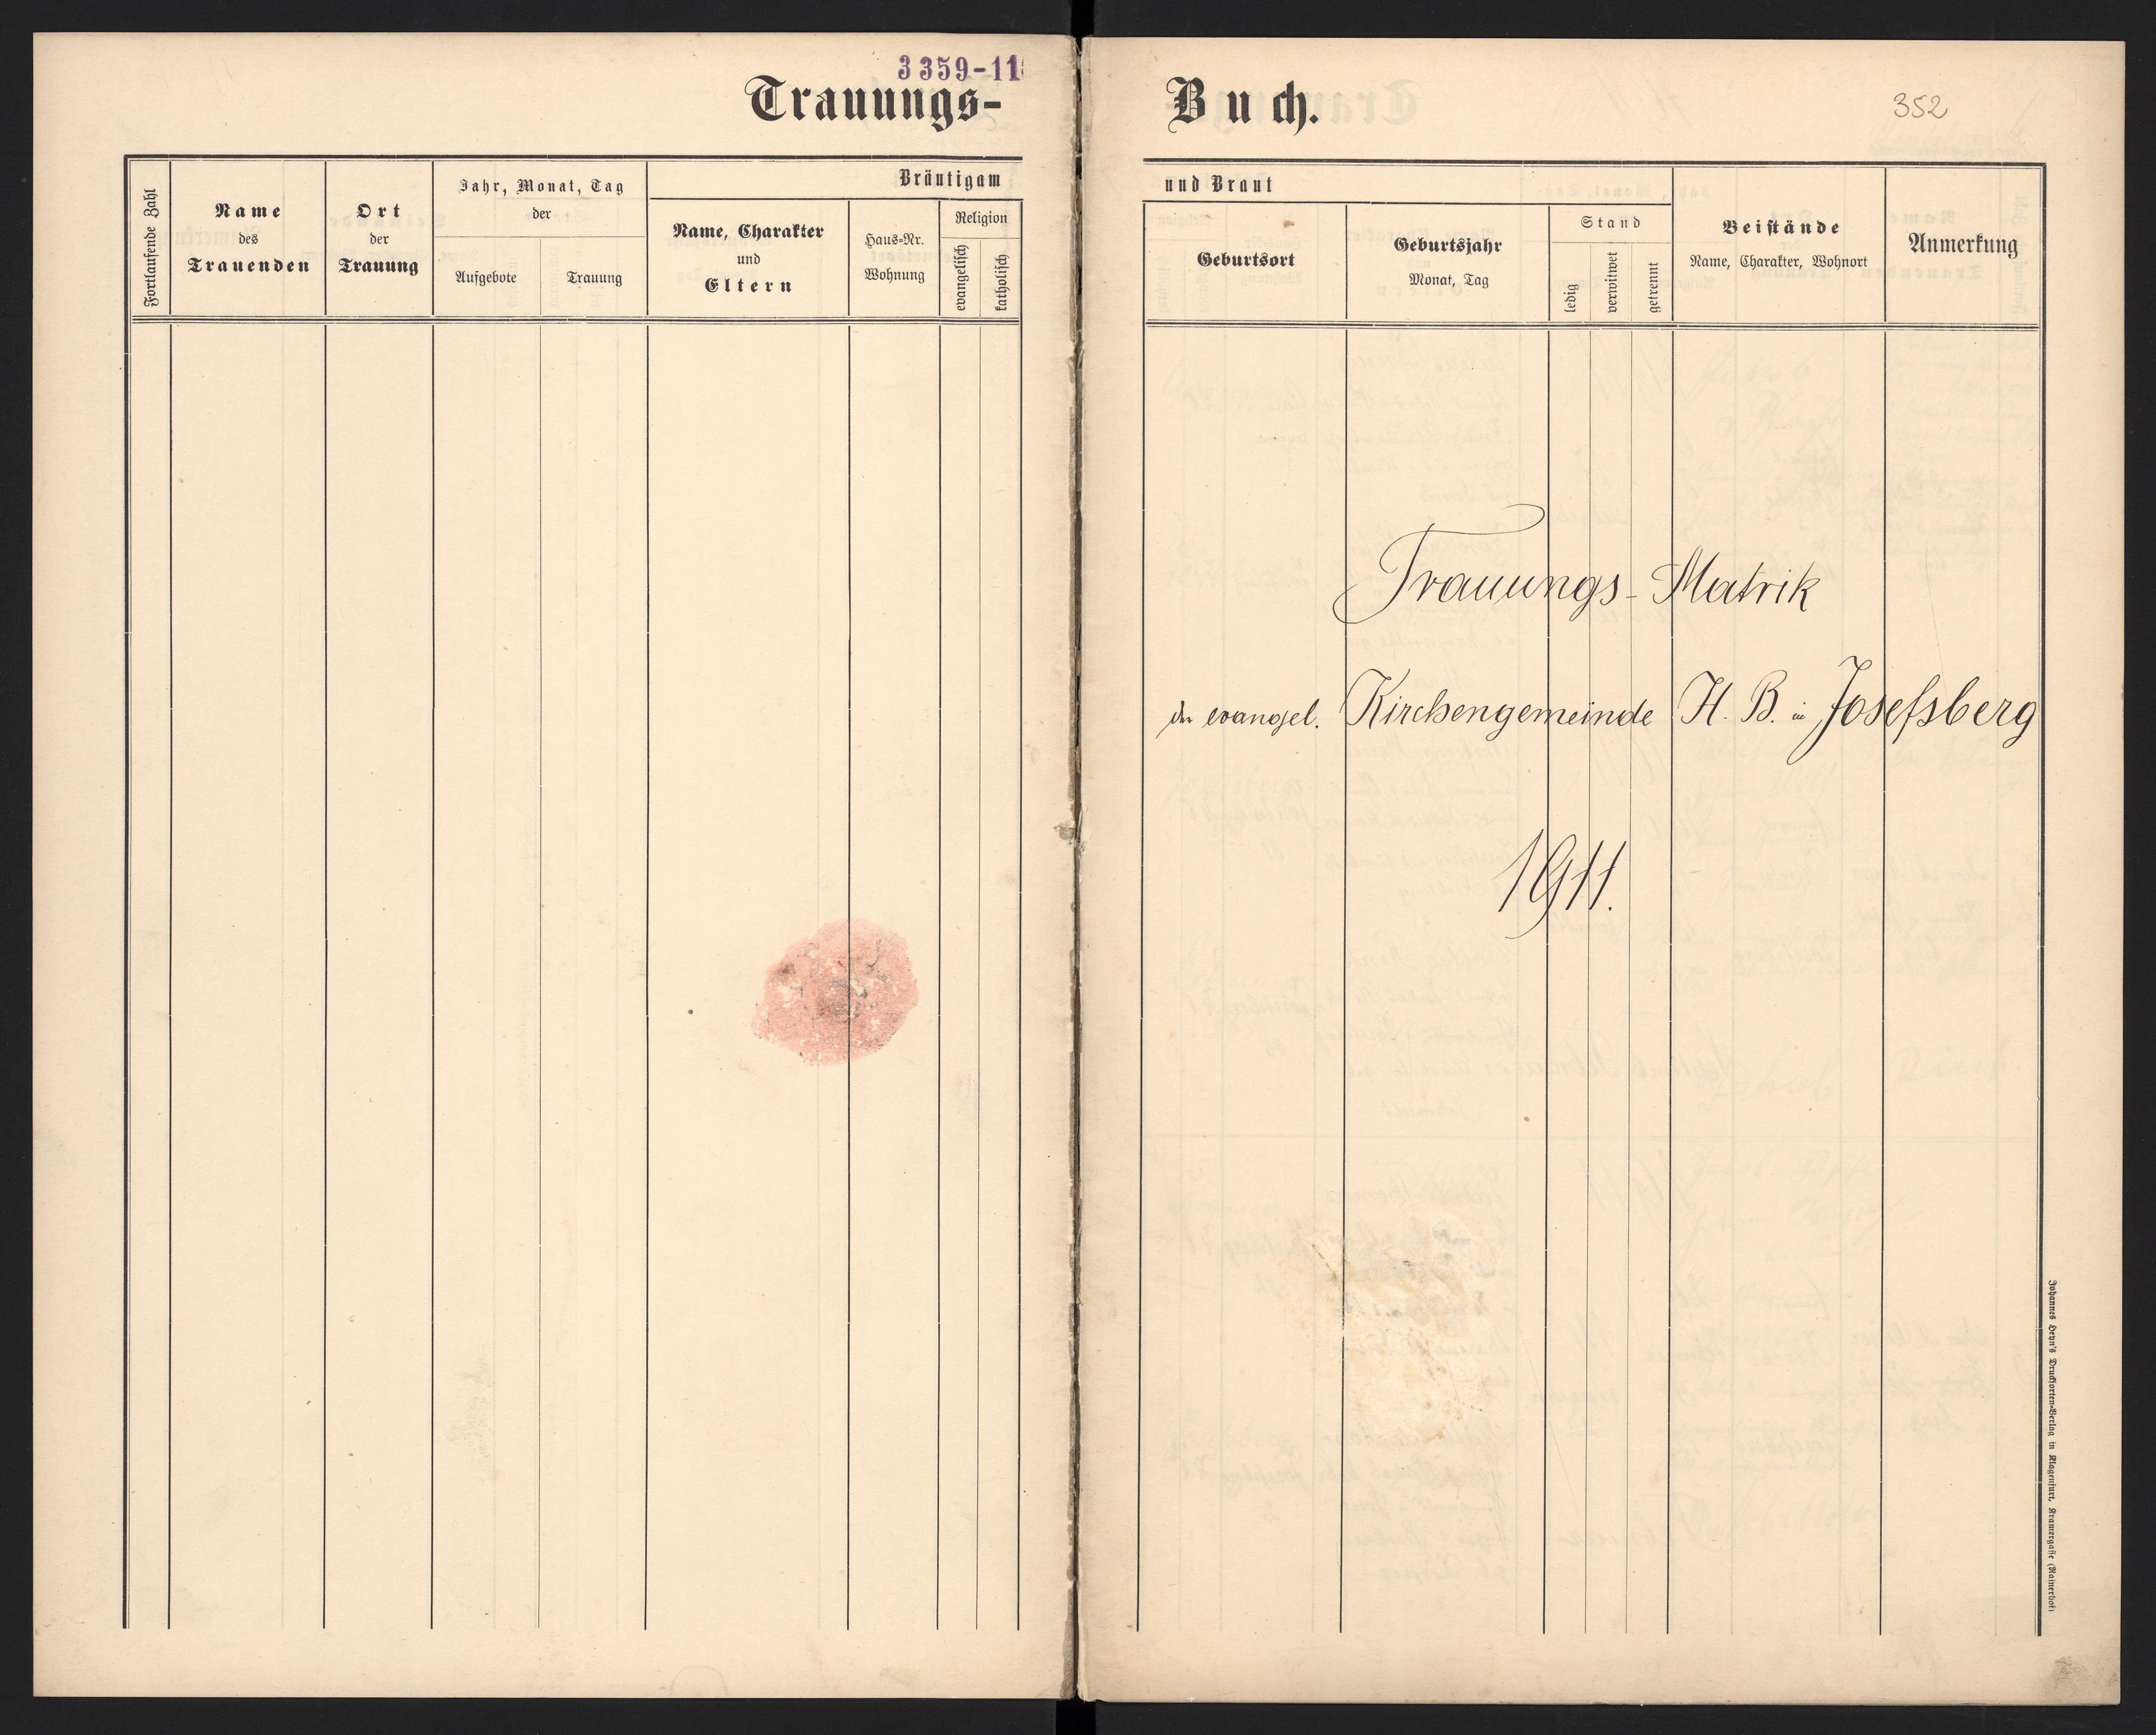 3359-11
Trauungs-
Fortlaufende Zahl
Name
des
Trauenden
Ort
der
Trauung
Jahr, Monat, Tag
der
Aufgebote
Trauung
Bräutigam
Name, Charakter
und
Eltern
Haus-Nr.
Wohnung
Religion
evangelisch
katholisch
Buch.
352
und Braut
Geburtsort
Geburtsjahr
Monat, Tag
Stand
ledig
verwitwet
getrennt
Beistände
Name, Charakter, Wohnort
Anmerkung
Trauungs-Matrik
der evangel. Kirchengemeinde H. B. in Josefsberg
1911.
Johannes Heyn's Drucksorten-Verlag in Klagenfurt, Kramergasse (Rainerhof)